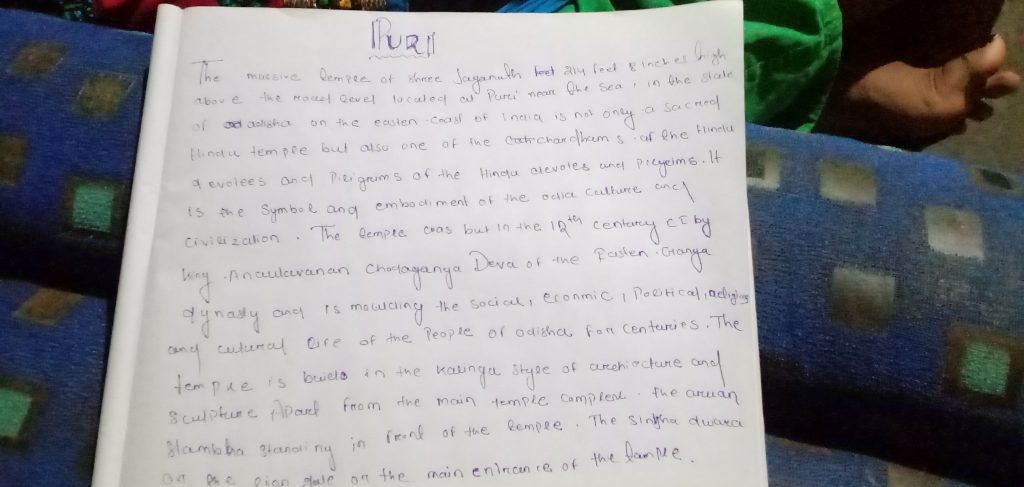 PURI
The massive temple of Shree Jaganath feet 214 feet 8 inches high
above the road level located at Puri near the sea, in the state
of odisha on the eastern coast of India is not only a sacred
Hindu temple but also one of the chardhams of the Hindu
devotees and piligrims of the Hindu devotes and pilgrims. It
is the symbol and embodiment of the odia culture and
civilization. The temple was but in the 12th century CE by
king Chodaganga Deva of the Easten Ganga
dynasty and is moulding the social, econmic, Political, religious
and cultural life of the People of odisha for centuries. The
temple is built in the kalinga style of archiecture and
sculpture Apart from the main temple complex. the aruan
stambha standing in front of the temple. The singha dwara
or the lion gate or the main entrances of the temple.